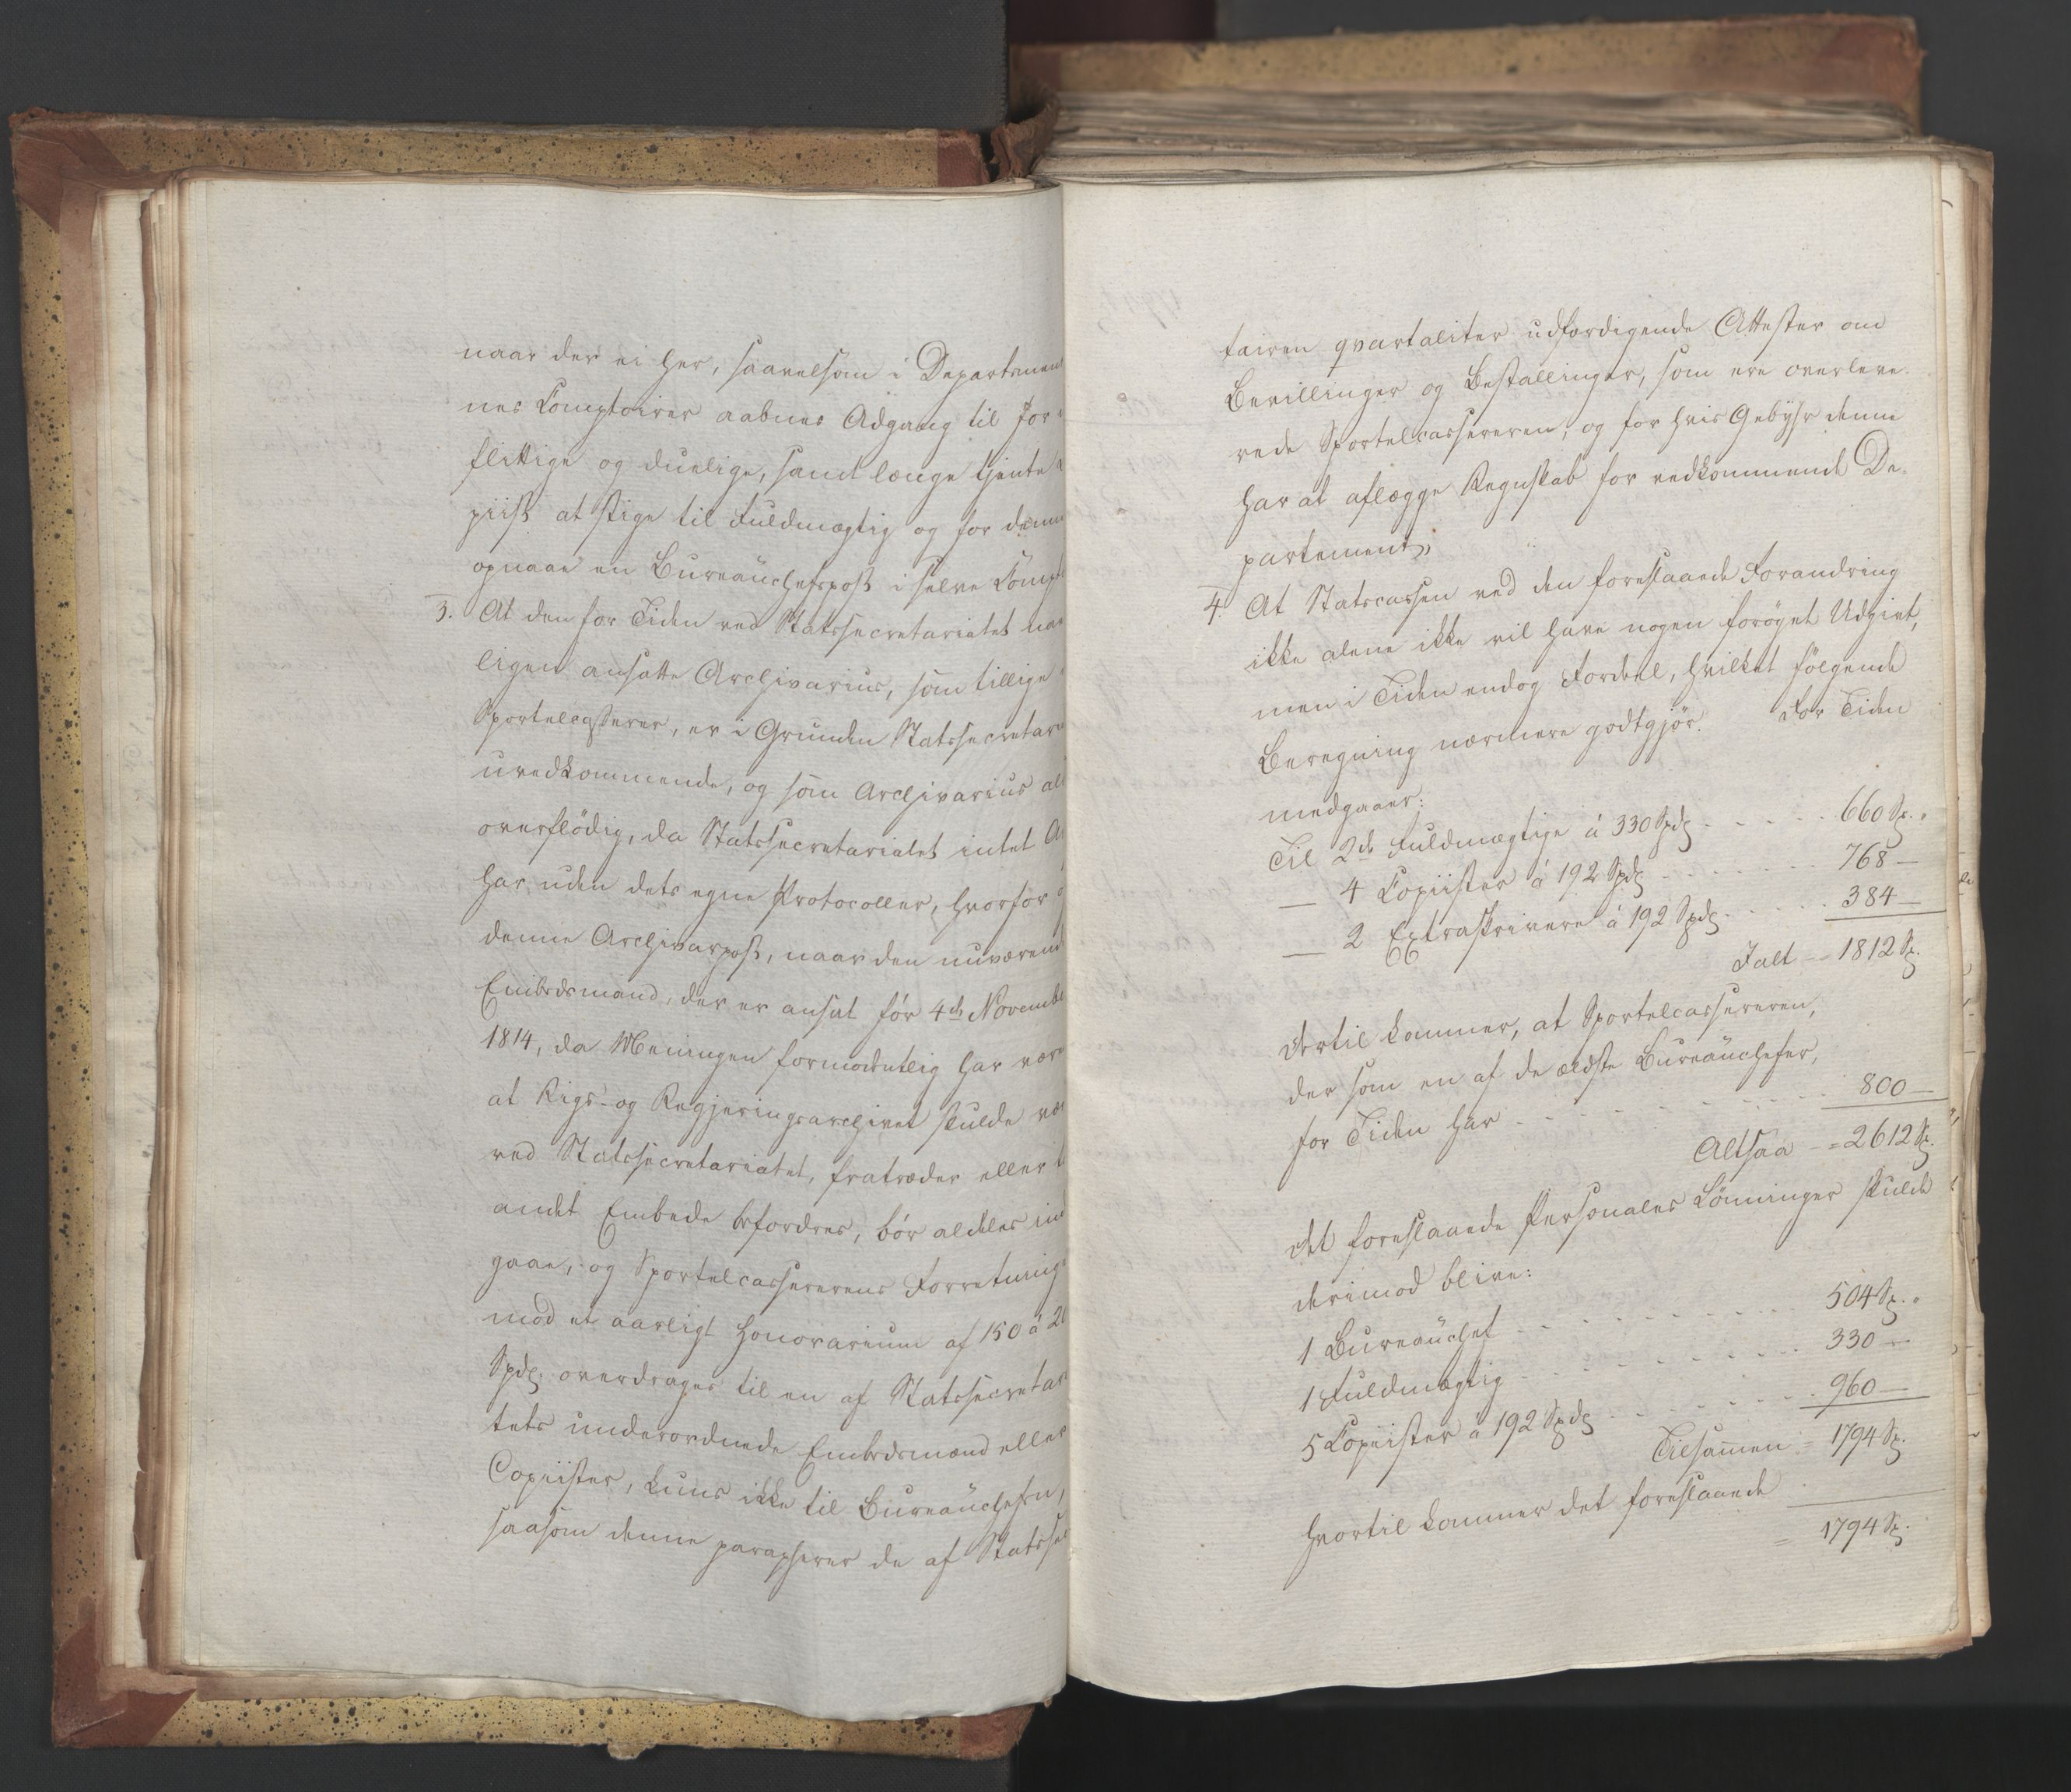 naar der ei her, saavelsom i Departemen
nes Comptoirer aabnes Adgang til for
flittige og duelige, samt længe tjente
piist at stige til Fuldmægtig og for denne
opnaae en Bureauchefspost i selve Compt
3. At den for Tiden ved Statssecretariatet nav
ligen ansatte Archivarius, som tillige
Sportelcasserer, er i Grunden Statssecretari
uvedkommende, og som Archivarius al
overflödig, da Statssecretariatet intet A
har uden dets egne Protocoller, hvorfor o
denne Archivarpost, naar den nuværend
Embedsmand, der er ansat för 4de Novembe
1814, da Meningen formodentlig har vær
at Rigs- og Regjeringsarchivet skulde væ
ved Statssecretariatet, fratræder eller t
andet Embede befordres, bör aldeles ind
gaae, og Sportelcassererens Forretning
mod et aarligt Honorarium af 150 à 20
Spd. overdrages til en af Statssecretar
tets underordnede Embedsmænd eller
Copiister, kuns ikke til Bureauchefen,
saasom denne parapherer de af Statsse
tairen qvartaliter udfærdigende Attester om
Bevillinger og Bestallinger, som ere overleve-
rede Sportelcassereren, og for hvis Gebyhr denne
har at aflægge Regnskab for vedkommende De-
partement,
4. At Statscassen ved den foreslaaede Forandring
ikke alene ikke vil have nogen foröget Udgivt,
men i Tiden endog Fordeel, hvilket fölgende
Beregning nærmere godtgjör. For Tiden
medgaaer:
Til 2de Fuldmægtige à 330 Spd. - - - - - 660 Sp. "
— 4 Copiister à 192 Spd. - - - - - - 768 —
— 2 Extraskrivere à 192 Spd. - - - - - 384 —
Ialt - - 1812 Sp.
Dertil kommer, at Sportelcassereren,
der som en af de ældste Bureauchefer,
for Tiden har - - - - - - - - - - 800 —
Altsaa - = 2612 Sp.
Det foreslaaede Personales Lönninger skulde
derimod blive:
1 Bureauchef - - - - - - - - - 504 Sp. "
1 Fuldmægtig - - - - - - - - - 330 —
5 Copiister à 192 Spd. - - - - - - 960 —
Tilsammen = 1794 Sp.
Hvortil kommer det foreslaaede
= 1794 Sp.